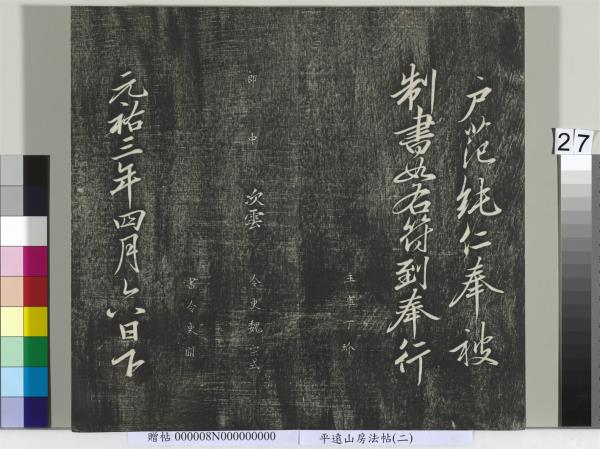 户范純仁奉被
制書如右符到奉行
主事丁玠
郎中
次雲
令史魏
書令史
元祐三年四月六日下
27
贈帖 000008N000000000 平遠山房法帖(二)